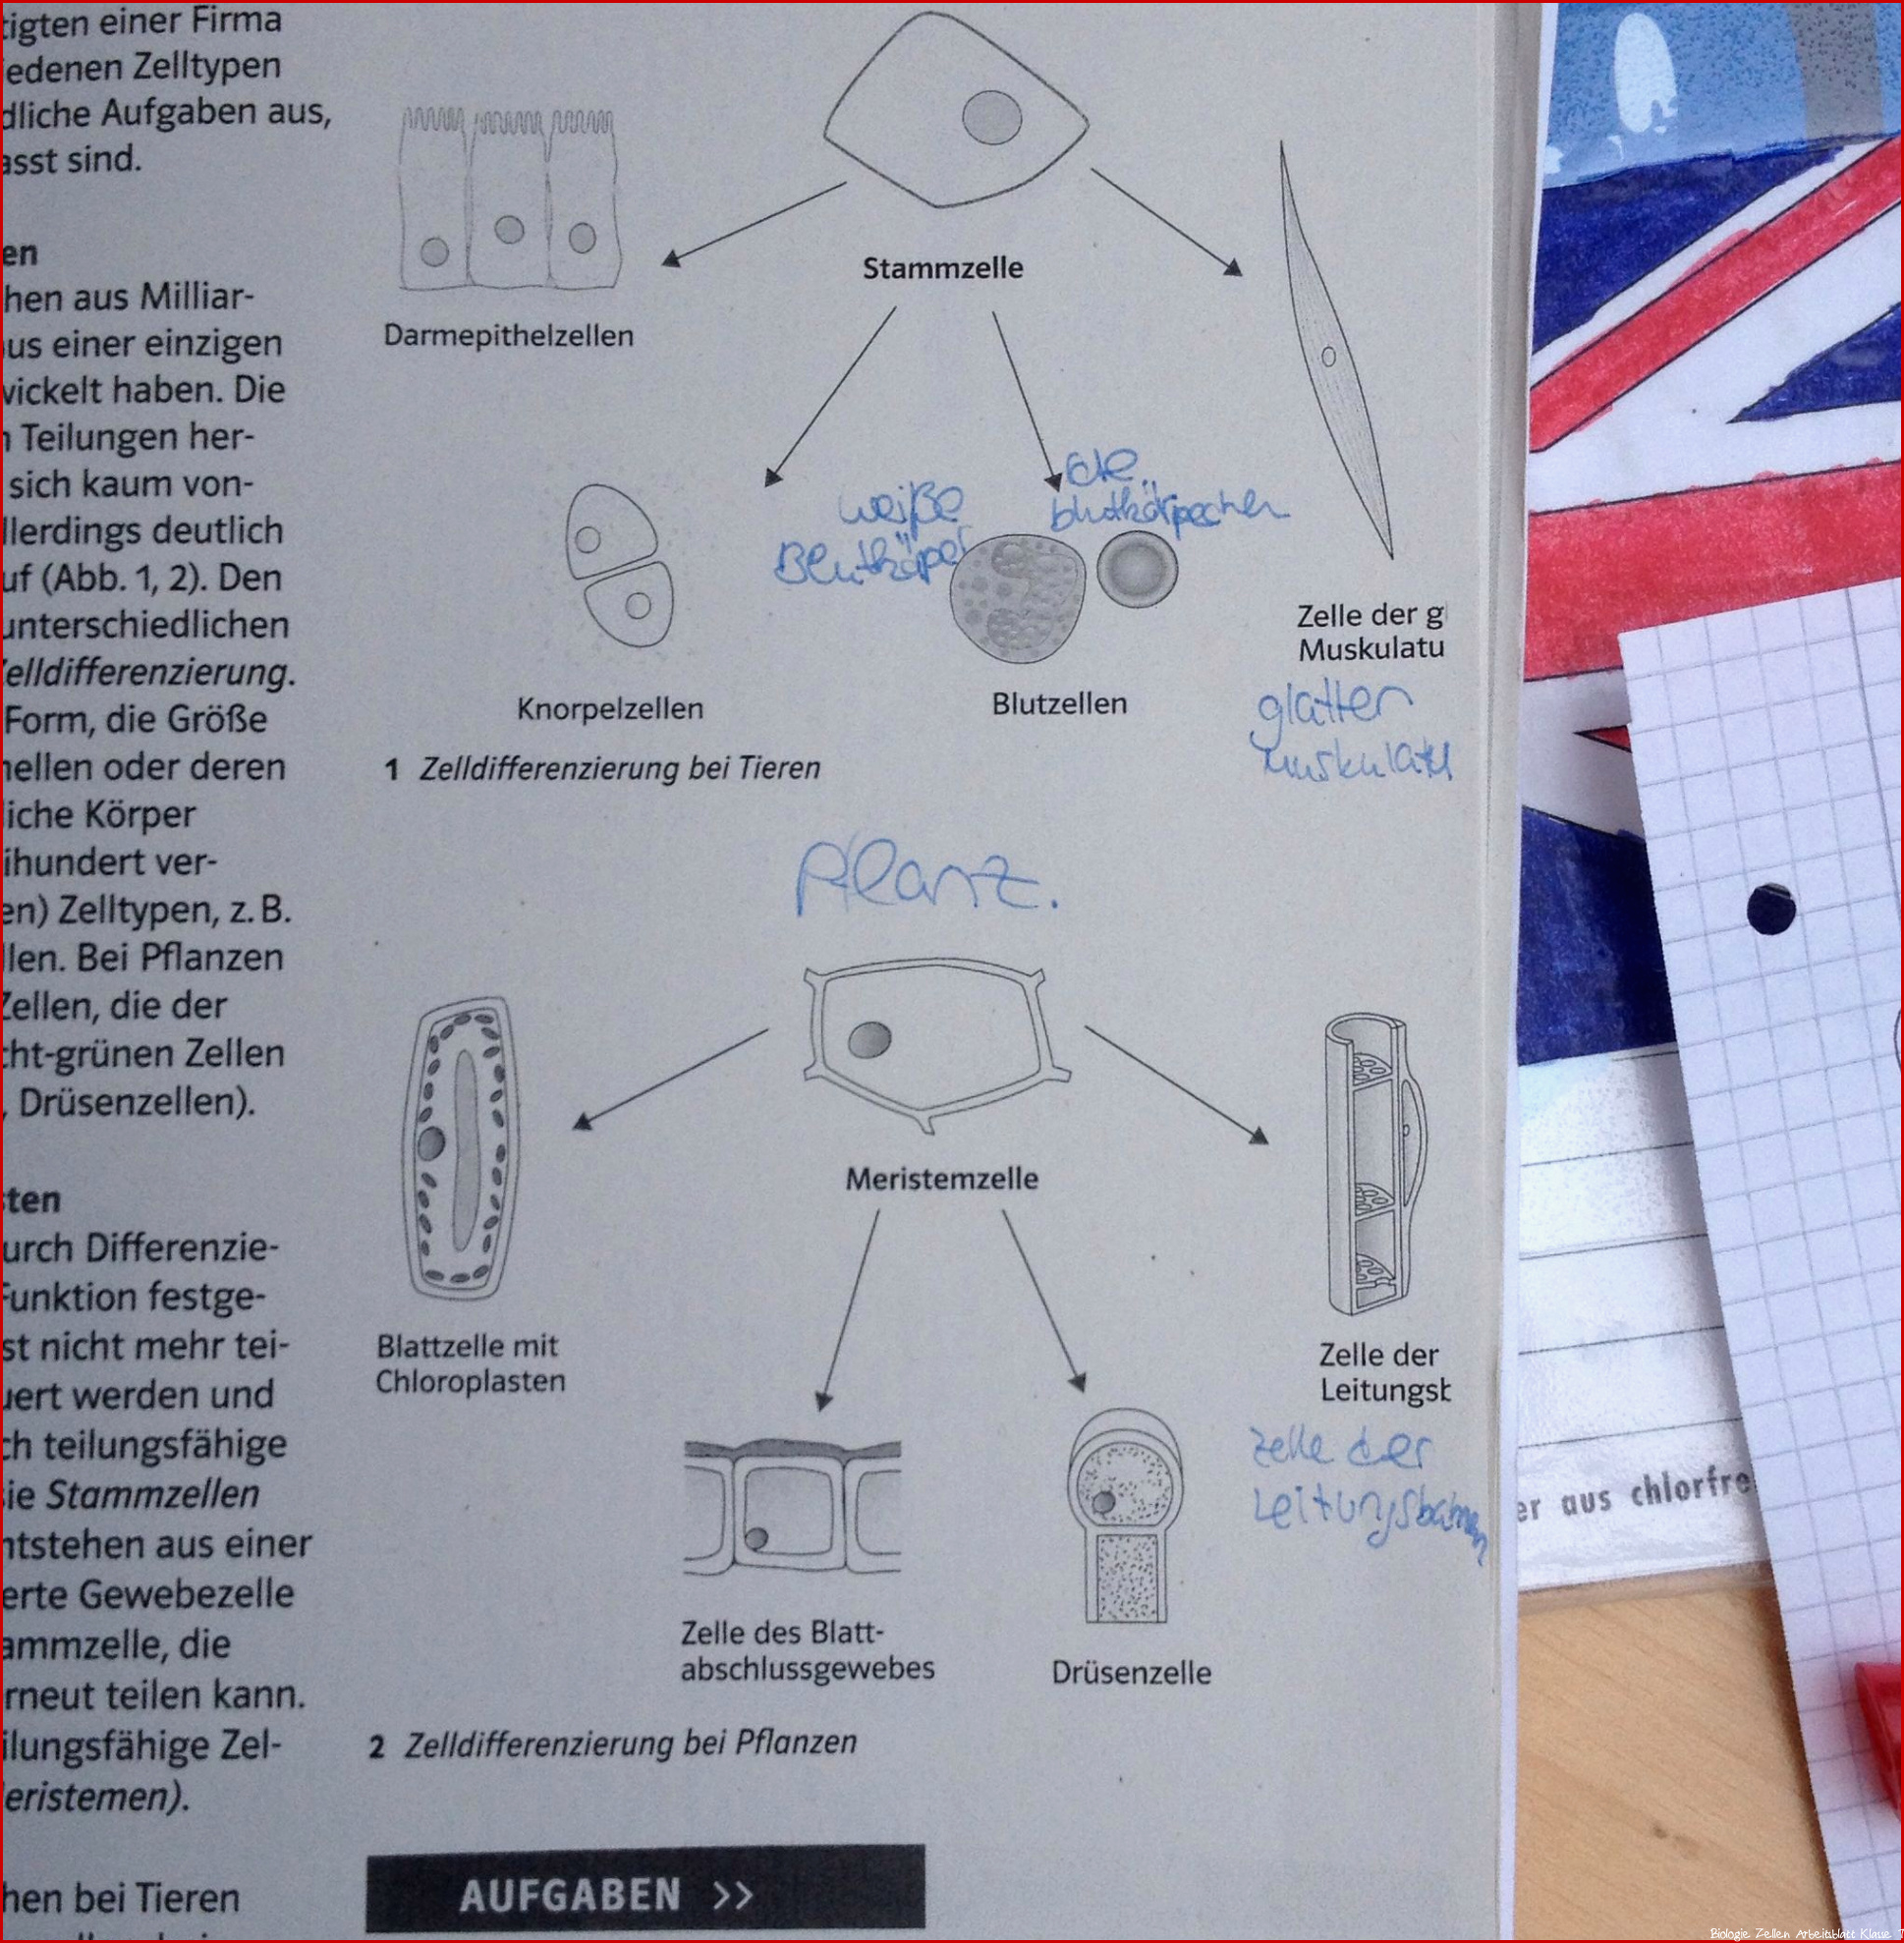 tigten einer Firma
iedenen Zelltypen
dliche Aufgaben aus,
asst sind.
en
hen aus Milliar-
us einer einzigen
wickelt haben. Die
n Teilungen her-
sich kaum von-
llerdings deutlich
uf (Abb. 1, 2). Den
unterschiedlichen
Zelldifferenzierung.
Form, die Größe
nellen oder deren
liche Körper
ihundert ver-
en) Zelltypen, z. B.
llen. Bei Pflanzen
Zellen, die der
cht-grünen Zellen
, Drüsenzellen).
ten
urch Differenzie-
Funktion festge-
st nicht mehr tei-
uert werden und
ch teilungsfähige
ie Stammzellen
ntstehen aus einer
erte Gewebezelle
ammzelle, die
rneut teilen kann.
ilungsfähige Zel-
eristemen).
hen bei Tieren
Stammzelle
Darmepithelzellen
weiße
Blutkörper
blutkörpechen
Zelle der g
Muskulatu
glatten
muskulatu
Knorpelzellen
Blutzellen
1 Zelldifferenzierung bei Tieren
Pflanz.
Meristemzelle
Blattzelle mit
Chloroplasten
Zelle der
Leitungsb
zelle der
Leitungsbahnen
Zelle des Blatt-
abschlussgewebes
Drüsenzelle
2 Zelldifferenzierung bei Pflanzen
AUFGABEN >>
er aus chlorfre
Biologie Zellen Arbeitsblatt Klasse 7